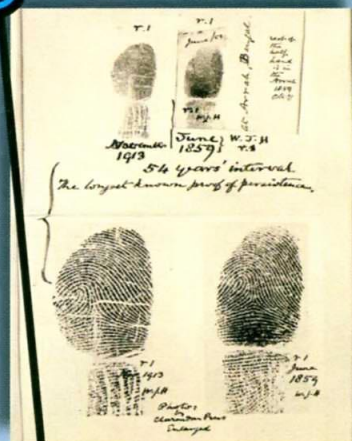 r.1
r.1
June/59
at Arrah, Bengal
rest of
the
half
hand
is in
the
r.1
W.J.H
November
1913
June,
1859,
W.J.H
r.1
54 years' interval
The longest known proof of persistence.
r.1
1913
W.J.H
r.1
June
1859
W.J.H
Photos
by
Clarendon Press
Enlarged